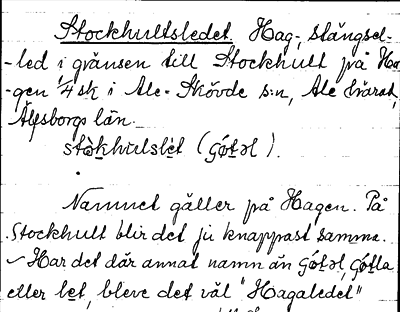 Stockhultsledet. Hag-, stängsel-
-led i gränsen till Stockhult på Ha-
-gen 1/4 sk i Ale-Skövde s:n, Ale härad,
Älvsborgs län.
stòkhulslet (gótəl).
Namnet gäller på Hagen. På
Stockhult blir det ju knappast samma.
Har det där annat namn än gótəl, gótla
eller let, bleve det väl "Hagaledet"